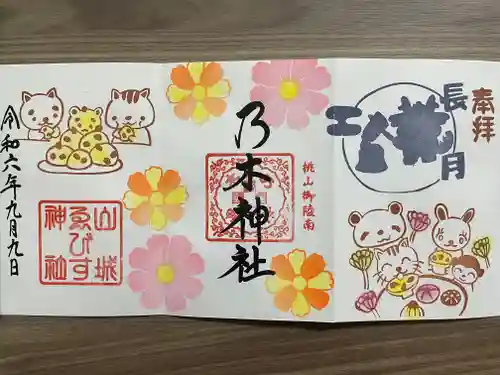 奉拝
長月
桃山御陵南
乃木神社
山城
ゑびす
神社
令和六年九月九日